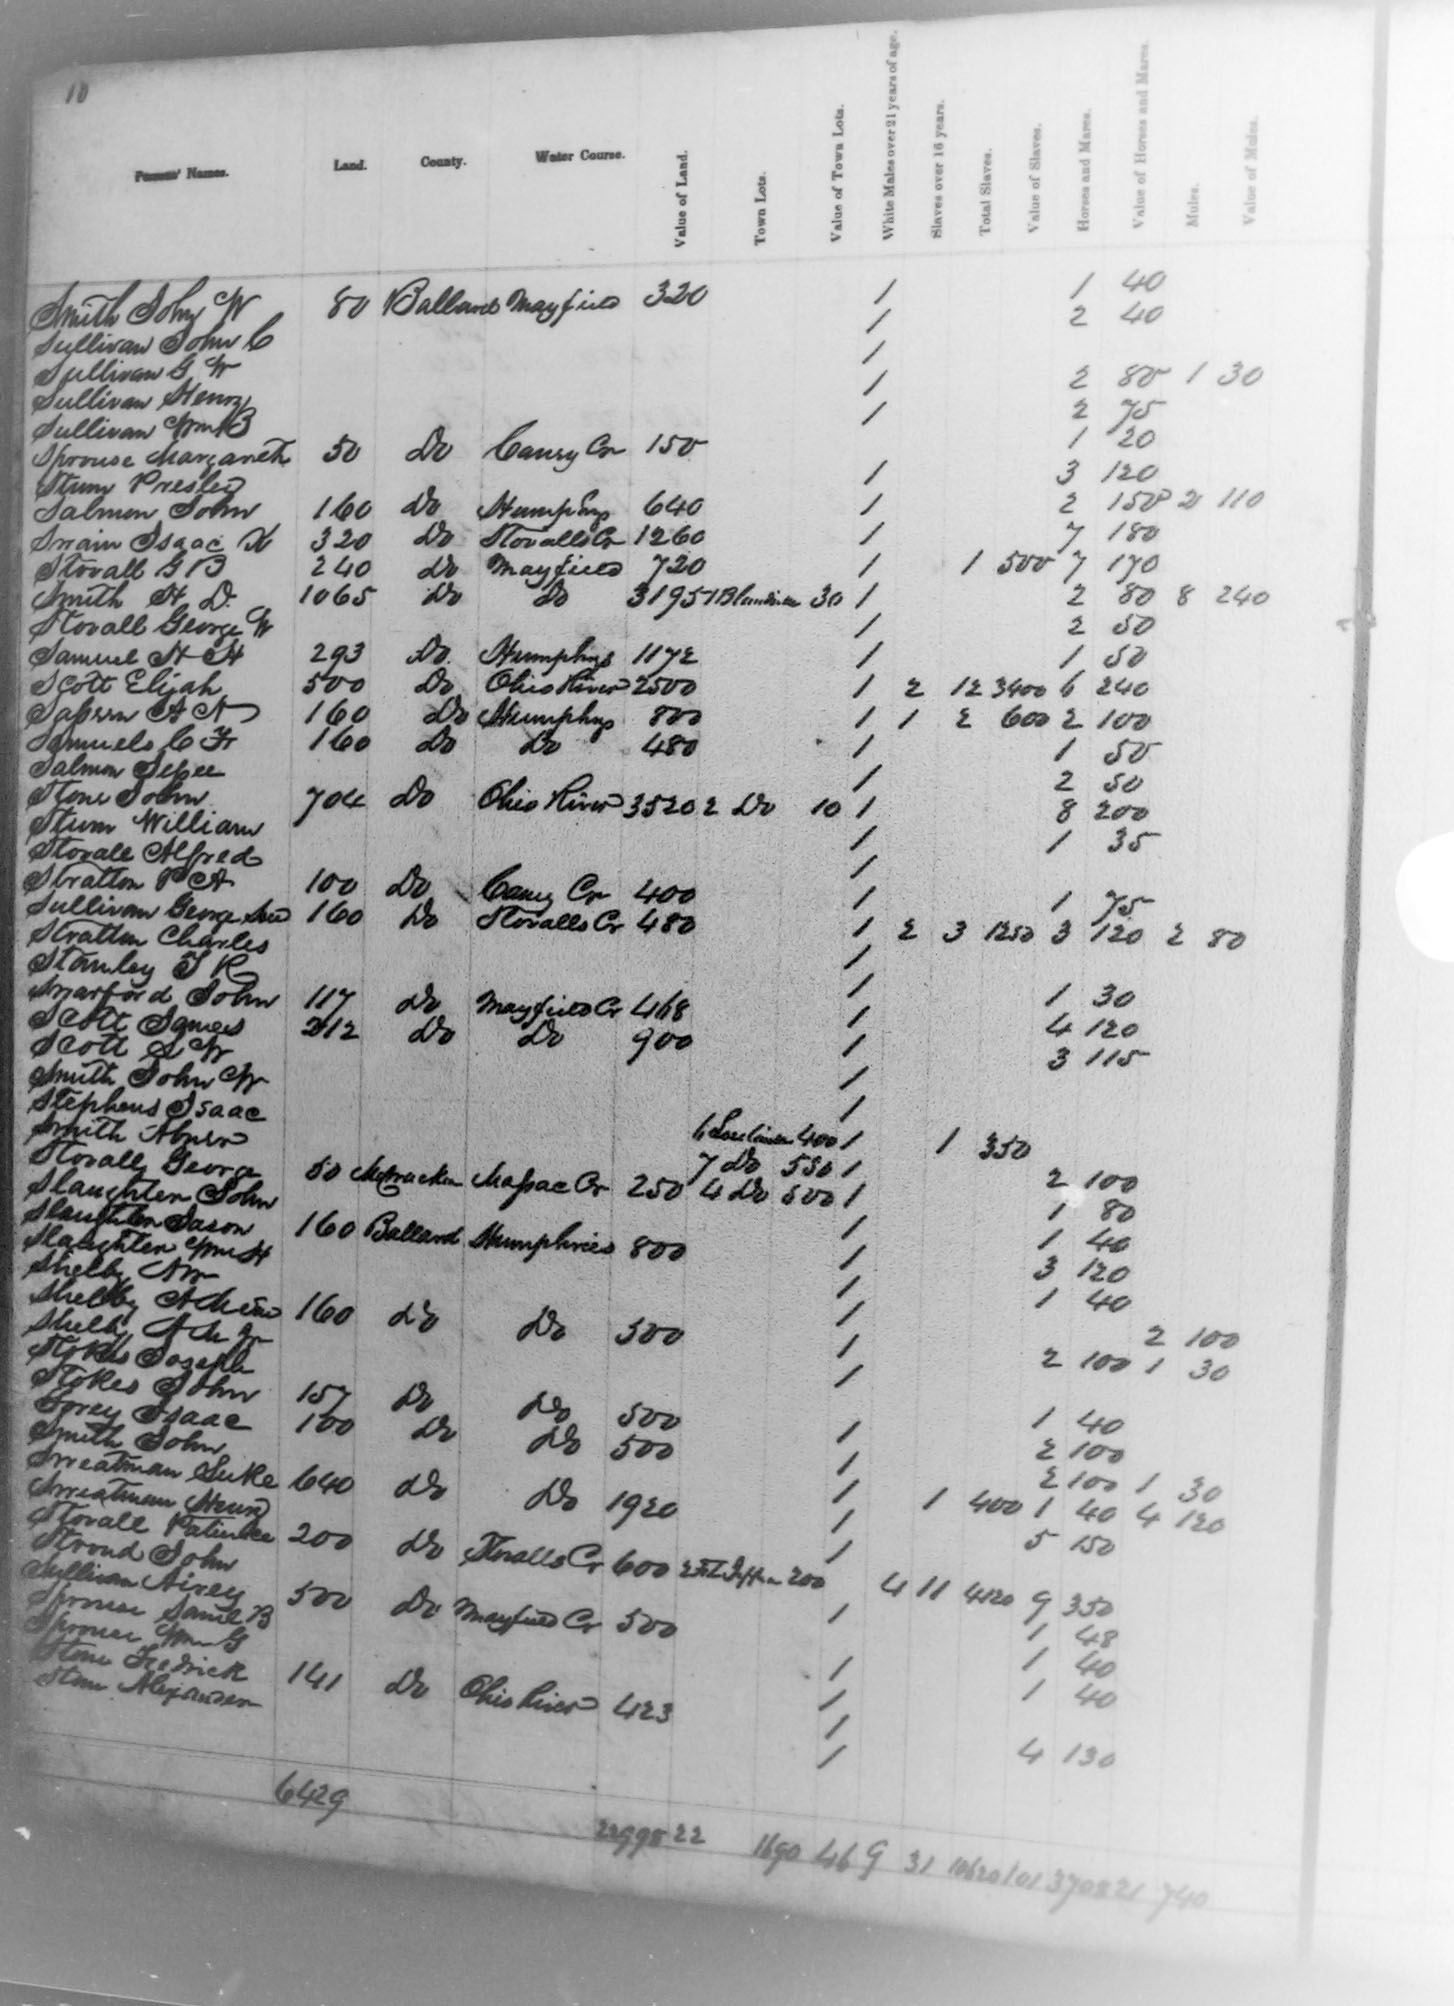 10
Persons' Names. Land. County. Water Course. Value of Land. Town Lots. Value of Town Lots. White Males over 21 years of age. Slaves over 16 years. Total Slaves. Value of Slaves. Horses and Mares. Value of Horses and Mares. Mules. Value of Mules.
Smith John W 80 Ballard Mayfield 320 1 1 40
Sullivan John C 1 2 40
Sullivan G W 1
Sullivan Henry 1 2 80 1 30
Sullivan Wm B 1 2 75
Sprouse Margareth 50 Do Caney Cr 150 1 20
Stum Presley 1 3 120
Salmon John 160 Do Humphys 640 1 2 150 2 110
Swain Isaac W 320 Do Stovalls Cr 1260 1 7 180
Stovall G B 240 Do Mayfield 720 1 1 500 7 170
Smith H D. 1065 Do Do 3195 1 Blandville 30 1 2 80 8 240
Stovall George W 1 2 50
Samuel H H 293 Do. Humphys 1172 1 1 50
Scott Elijah 500 Do Ohio River 2500 1 2 12 3400 6 240
A N 160 Do Humphys 800 1 1 2 600 2 100
Samuels C Fr 160 Do Do 480 1 1 50
Salmon Jesse 1 2 50
Stone John 704 Do Ohio River 3520 2 Do 10 1 8 200
Stum William 1 1 35
Stovall Alfred 1
Stratton P A 100 Do Caney Cr 400 1 1 75
Sullivan George Sen 160 Do Stovalls Cr 480 1 2 3 1250 3 120 2 80
Stratton Charles 1
Stanley T R 1 1 30
John 117 Do Mayfield Cr 468 1 4 120
Scott James 212 Do Do 900 1 3 115
Scott S W 1
Smith John W 1
Stephens Isaac 6 400 1 1 350
Smith Abner 7 Do 550 1
Stovall George 50 McCracken Massac Cr 250 4 Do 500 1 2 100
Slaughter John 1 1 80
Slaughter Jason 160 Ballard Humphries 800 1 1 40
Slaughter Wm H 1 3 120
Shelby Wm 1 1 40
Shelby A M Sen 160 Do Do 500 1 2 100
Shelby A M Jr 1 2 100 1 30
Stokes Joseph
Stokes John 157 Do Do 500 1 1 40
Isaac 100 Do Do 500 1 2 100
Smith John 1 2 100 1 30
Sweatman Luke 640 Do Do 1920 1 1 400 1 40 4 120
Sweatman Henry 1 5 150
Stovall 200 Do Stovalls Cr 600 200 4 11 4120 9 350
Stroud John 1 1 48
Sullivan Airey 500 Do Mayfield Cr 500 1 40
Sprouse Saml B 1 1 40
Sprouse Wm G 1
Stone Fredrick 141 Do Ohio River 423 1
Stone Alexander 1 4 130
6429 22998 22 1690 46 9 31 10620 101 3708 21 740